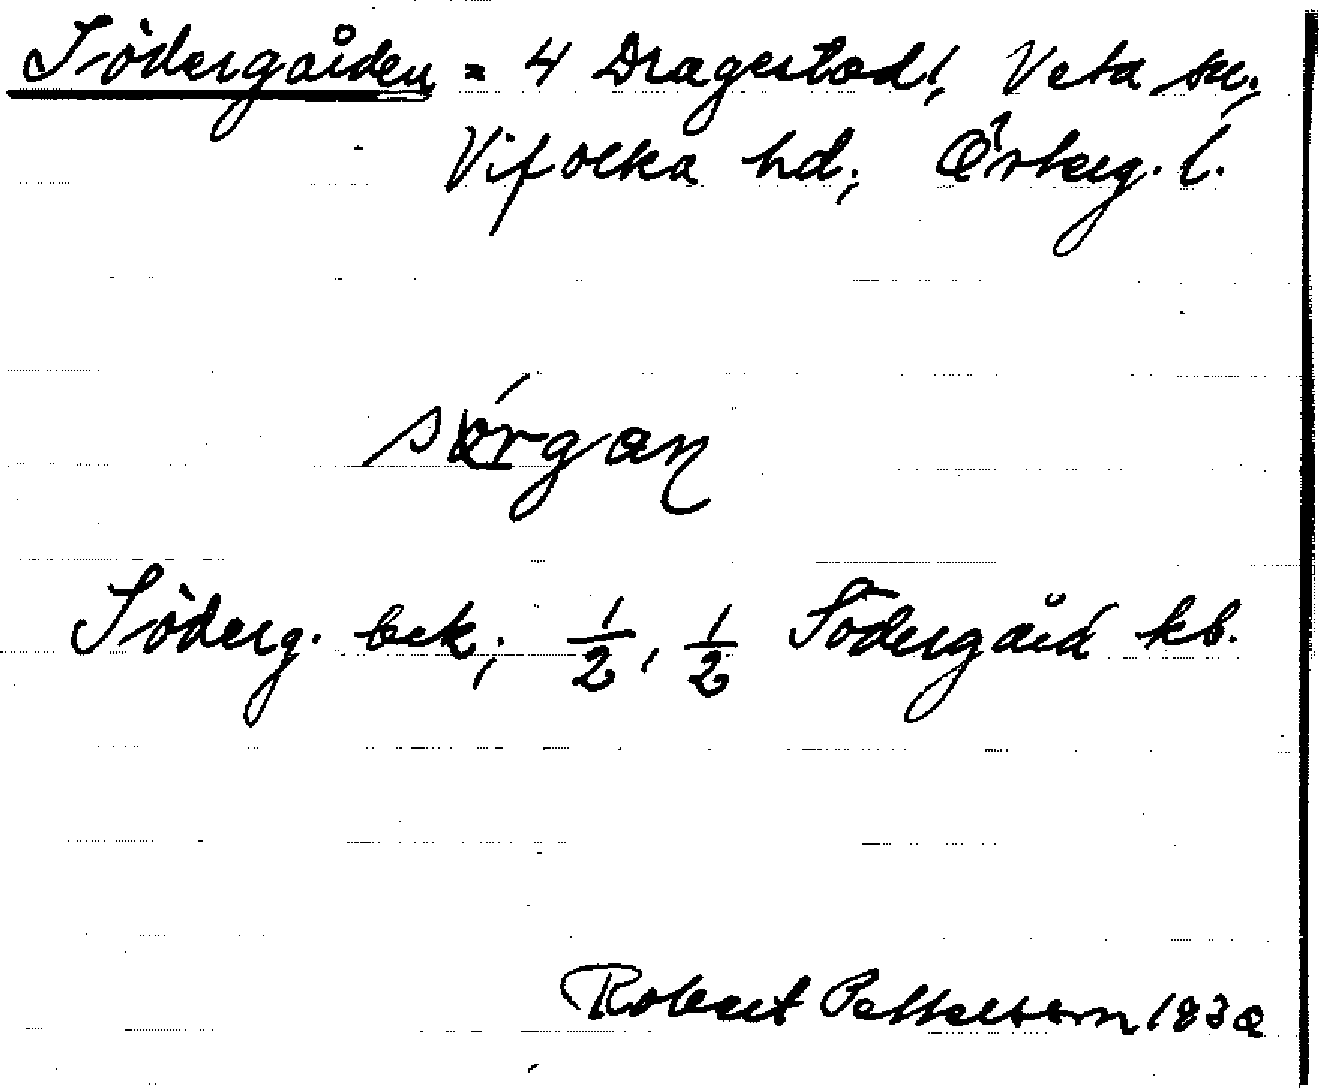 Södergården = 4 Dragestad, Veta sn,
Vifolka hd, Österg. l.
sörgaɳ
Söderg. bek, 1/2, 1/2 Södergård kb.
Robert Pettersson 1932